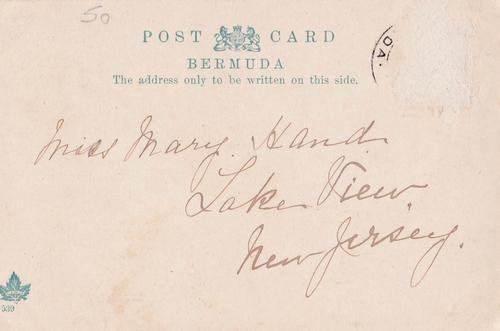 50
POST CARD
DA.
BERMUDA
The address only to be written on this side.
Miss Mary Hand.
Lake View.
New Jersey.
539